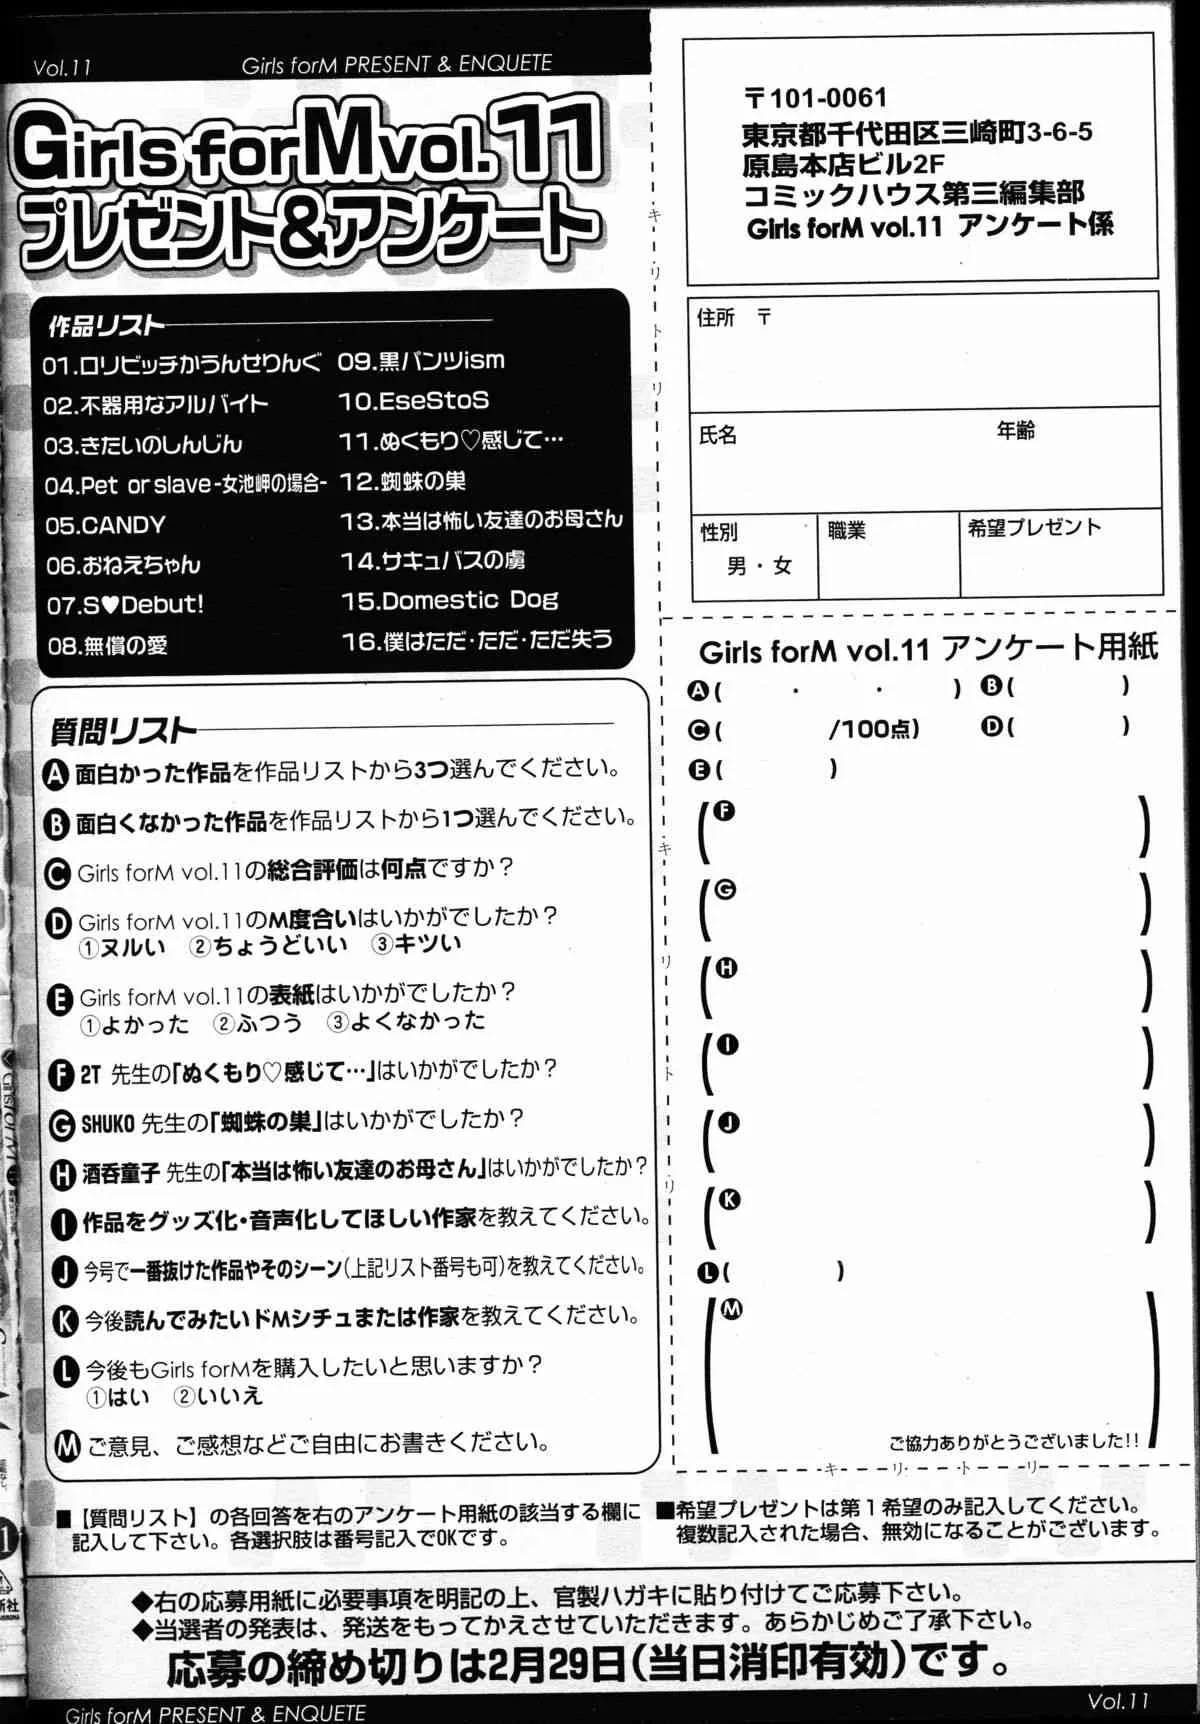 Vol.11
Girls forM PRESENT & ENQUETE
Girls forM vol.11
プレゼント&アンケート
作品リスト
01.ロリビッチかうんせりんぐ
02.不器用なアルバイト
03.きたいのしんじん
04.Pet or slave-女池岬の場合-
05.CANDY
06.おねえちゃん
07.S♥Debut!
08.無償の愛
09.黒パンツism
10.EseStoS
11.ぬくもり♡感じて…
12.蜘蛛の巣
13.本当は怖い友達のお母さん
14.サキュバスの虜
15.Domestic Dog
16.僕はただ・ただ・ただ失う
質問リスト
A 面白かった作品を作品リストから3つ選んでください。
B 面白くなかった作品を作品リストから1つ選んでください。
C Girls forM vol.11の総合評価は何点ですか？
D Girls forM vol.11のM度合いはいかがでしたか？
①ヌルい ②ちょうどいい ③キツい
E Girls forM vol.11の表紙はいかがでしたか？
①よかった ②ふつう ③よくなかった
F 2T 先生の「ぬくもり♡感じて…」はいかがでしたか？
G SHUKO 先生の「蜘蛛の巣」はいかがでしたか？
H 酒呑童子 先生の「本当は怖い友達のお母さん」はいかがでしたか？
I 作品をグッズ化・音声化してほしい作家を教えてください。
J 今号で一番抜けた作品やそのシーン(上記リスト番号も可)を教えてください。
K 今後読んでみたいドMシチュまたは作家を教えてください。
L 今後もGirls forMを購入したいと思いますか？
①はい ②いいえ
M ご意見、ご感想などご自由にお書きください。
〒101-0061
東京都千代田区三崎町3-6-5
原島本店ビル2F
コミックハウス第三編集部
Girls forM vol.11 アンケート係
住所 〒
氏名 年齢
性別 職業 希望プレゼント
男・女
キリトリ
Girls forM vol.11 アンケート用紙
A( ・ ・ ) B( )
C( /100点) D( )
E( )
(F )
(G )
(H )
(I )
(J )
(K )
L( )
(M
ご協力ありがとうございました!! )
キリトリ
キリトリ
■【質問リスト】の各回答を右のアンケート用紙の該当する欄に
記入して下さい。各選択肢は番号記入でOKです。
■希望プレゼントは第1希望のみ記入してください。
複数記入された場合、無効になることがございます。
◆右の応募用紙に必要事項を明記の上、官製ハガキに貼り付けてご応募下さい。
◆当選者の発表は、発送をもってかえさせていただきます。あらかじめご了承下さい。
応募の締め切りは2月29日(当日消印有効)です。
Girls forM PRESENT & ENQUETE
Vol.11